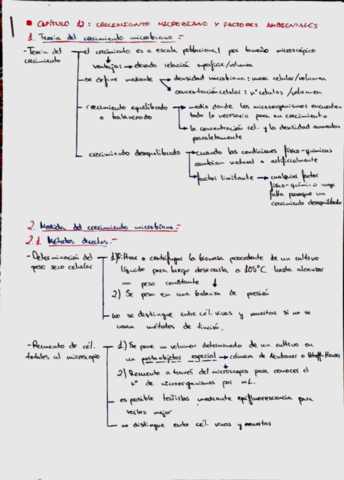 CAPÍTULO 12: CRECIMIENTO MICROBIANO Y FACTORES AMBIENTALES
1. Teoría del crecimiento microbiano.-
- Teoría del crecimiento
el crecimiento es a escala poblacional por tamaño microscópico
ventajas: → elevada relación superficie/volumen
se define mediante → densidad microbiana: masa celular/volumen
concentración celular: nº células/volumen
crecimiento equilibrado o balanceado → medio donde los microorganismos encuentran
todo lo necesario para su crecimiento
la concentración cel. y la densidad aumentan
paralelamente
crecimiento desequilibrado → cuando las condiciones físico-químicas
cambian natural o artificialmente
factor limitante → cualquier factor
físico-químico cuya
falta provoque un
crecimiento desequilibrado
2. Medida del crecimiento microbiano.-
2.1. Métodos directos.-
- Determinación del peso seco celular
1) Filtrar o centrifugar la biomasa procedente de un cultivo
líquido para luego desecarla a 105ºC hasta alcanzar
un peso constante
2) Se pesa en una balanza de precisión
no se distingue entre cél. vivas y muertas si no se
usan métodos de tinción.
- Recuento de cél. totales al microscopio
1) Se pone un volumen determinado de un cultivo en
un portaobjetos especial → cámara de Neubauer o Petroff-Hausser
2) Recuento a través del microscopio para conocer el
nº de microorganismos por mL.
es posible teñirlas mediante epifluorescencia para
verlas mejor
no distingue entre cél. vivas y muertas